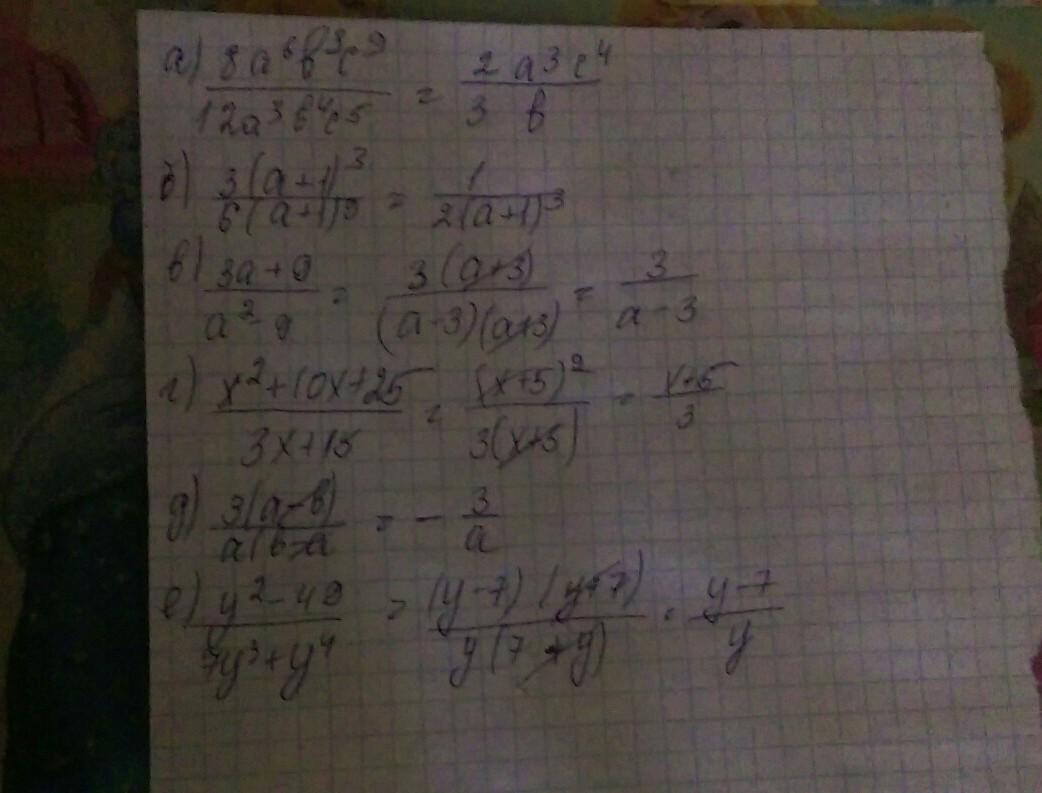 а) 8a⁶b³c⁹ / 12a³b⁴c⁵ = 2a³c⁴ / 3 b
б) 3(a+1)³ / 6(a+1)⁹ = 1 / 2(a+1)³
в) 3a+9 / a²-9 = 3(a+3) / (a-3)(a+3) = 3 / a-3
г) x²+10x+25 / 3x+15 = (x+5)² / 3(x+5) = x+5 / 3
д) 3(a-b) / a(b-a = - 3 / a
е) y²-49 / 7y³+y⁴ = (y-7)(y+7) / y(7+y) = y-7 / y